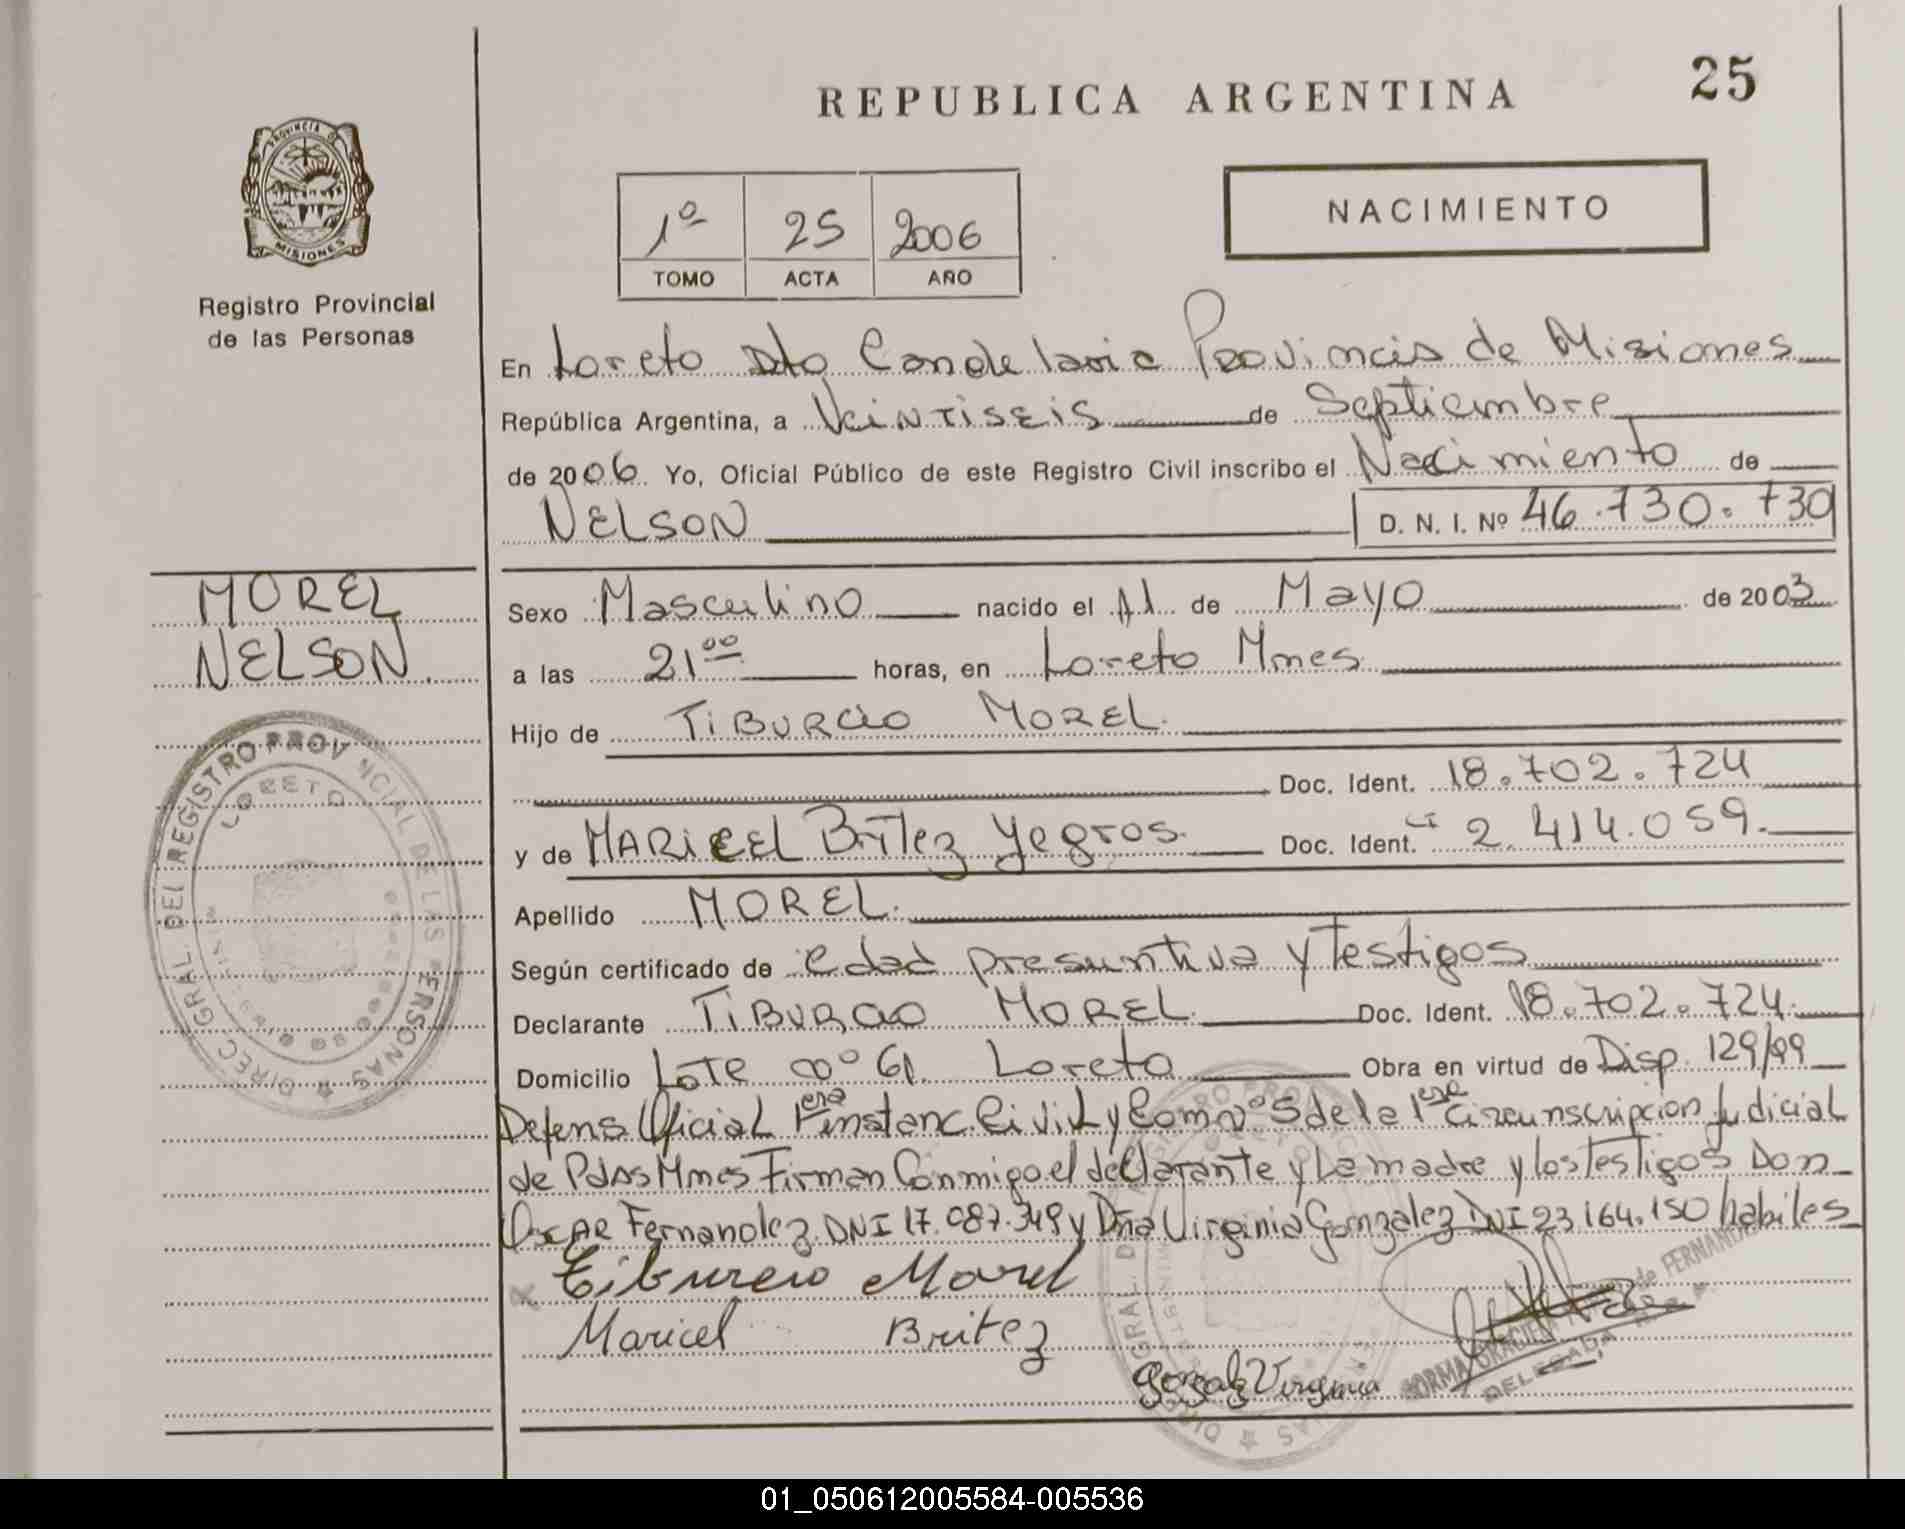 REPUBLICA ARGENTINA
25
PROVINCIA DE
MISIONES
Registro Provincial
de las Personas
1º 25 2006
TOMO ACTA AÑO
NACIMIENTO
En Loreto Dto Candelaria Provincia de Misiones
República Argentina, a Veintiseis de Septiembre
de 2006. Yo, Oficial Público de este Registro Civil inscribo el Nacimiento de
NELSON D. N. I. Nº 46.730.730
MOREL
NELSON
Sexo Masculino nacido el 11 de Mayo de 2003
a las 21 00 horas, en Loreto Mnes
Hijo de TiBURCIO MOREL.
Doc. Ident. 18.702.724
y de MARICEL Britez Yegros. Doc. Ident. CI 2.414.059.
Apellido MOREL.
Según certificado de edad presuntiva y Testigos
Declarante TiBURCIO MOREL Doc. Ident. 18.702.724.
Domicilio Lote nº 61. Loreto Obra en virtud de Disp. 129/99
Defens Oficial 1era instanc. Civil y Com nº 5 de la 1era Circunscripcion Judicial
de Pdas Mnes Firman Conmigo el declarante y La madre y los Testigos Don
Oscar Fernandez DNI 17.087.349 y Dña Virginia Gonzalez DNI 23.164.150 habiles
Tiburcio Morel
Maricel Britez
Virginia
NORMA GRACIELA de FERNANDEZ
DELEGADA
DIREC. GRAL. DEL REGISTRO PROVINCIAL DE LAS PERSONAS
LORETO
01_050612005584-005536